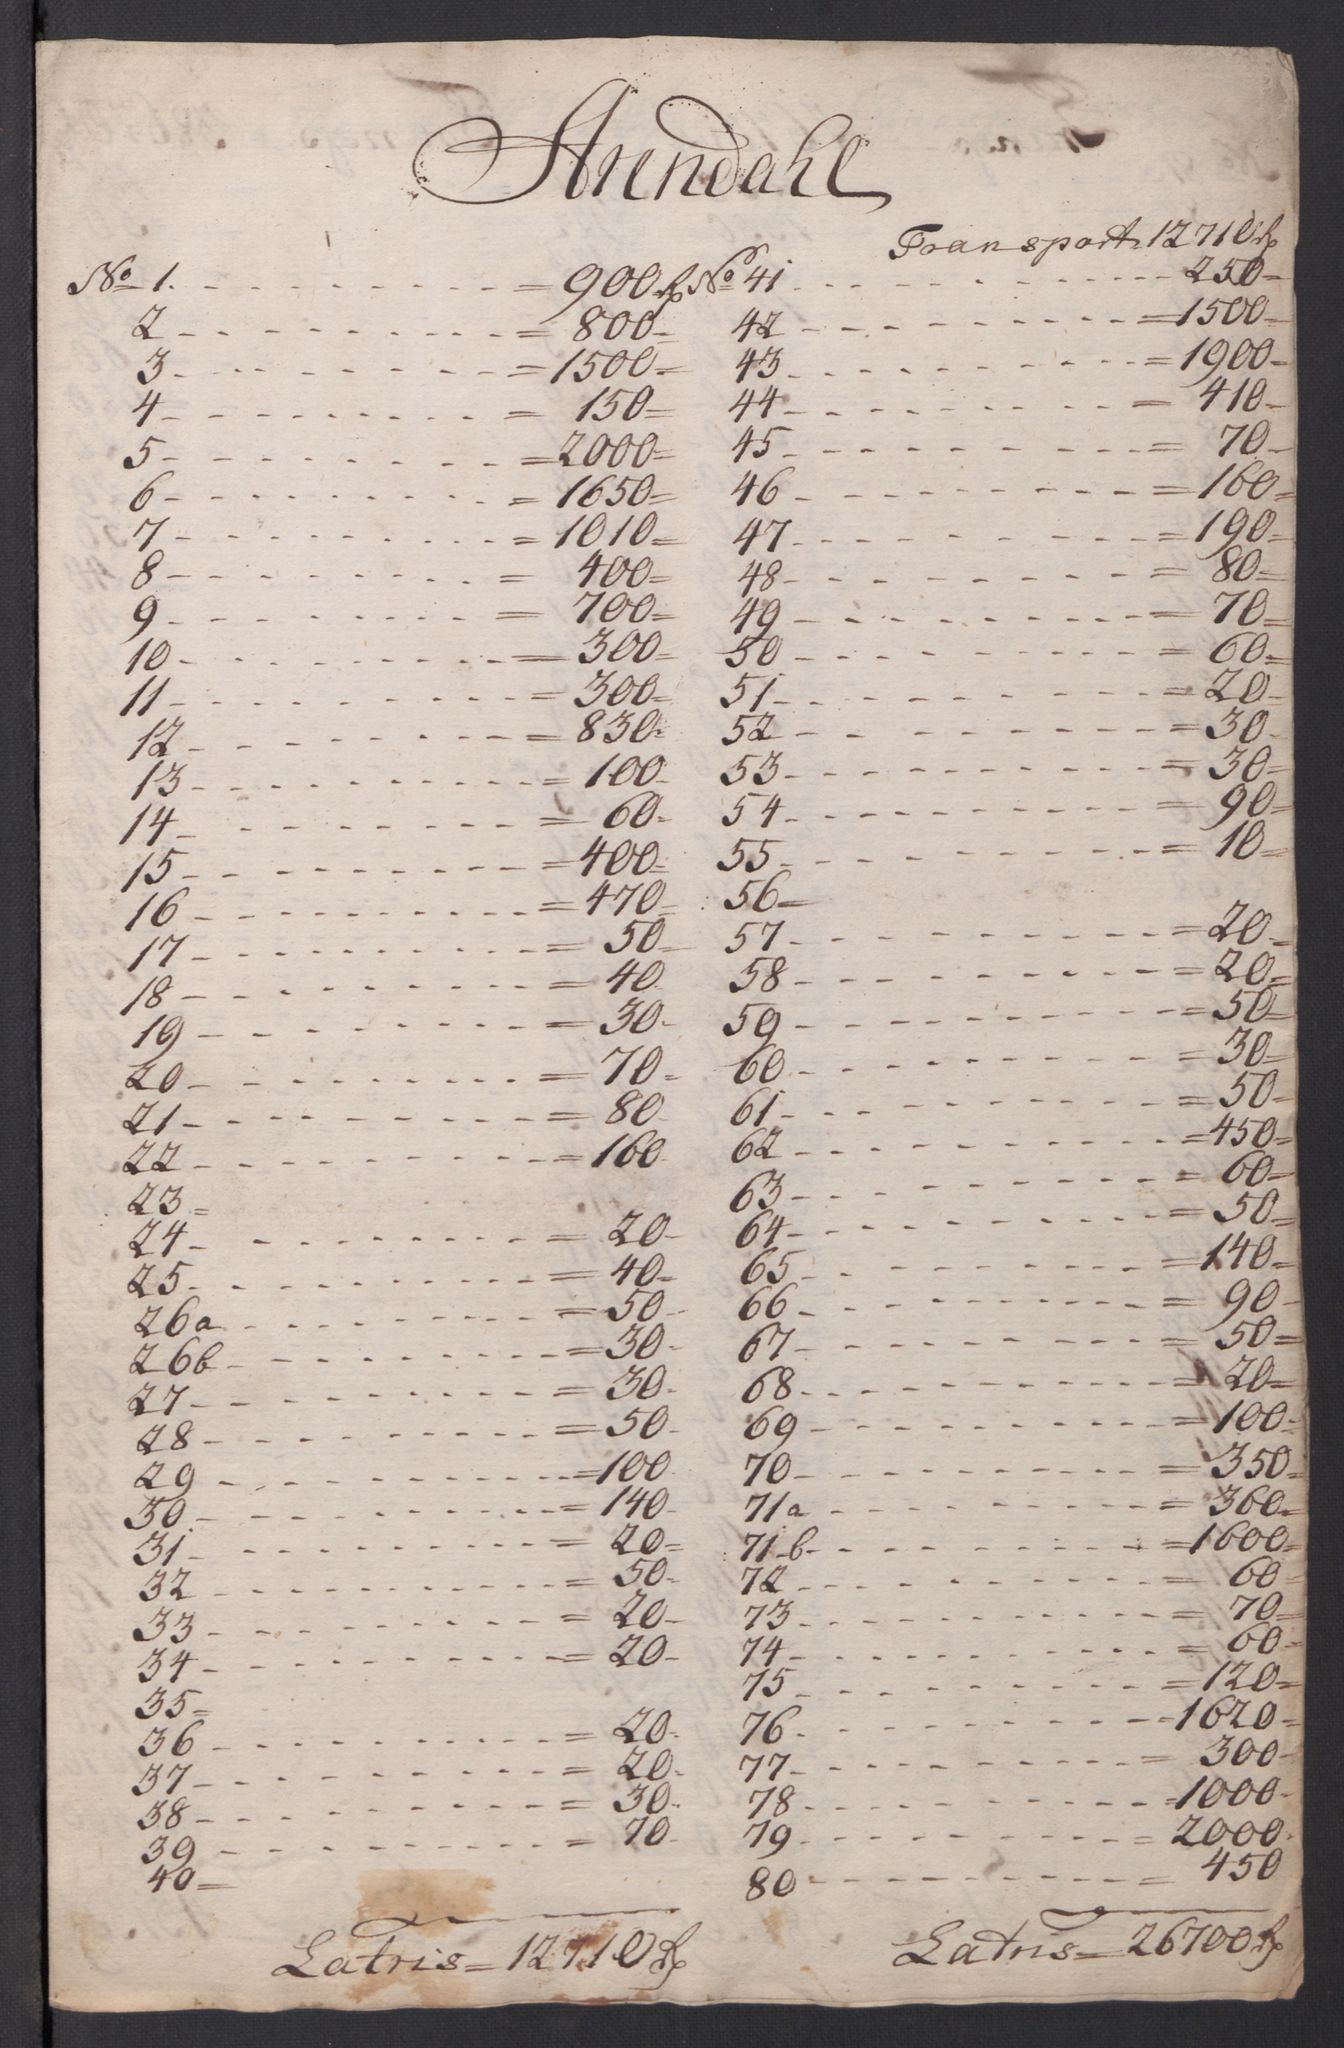 Arendahl
No 1. - - - = 900 rd
2 - - - = 800 -
3 - - - = 1500 =
4 - - - = 150 =
5 - - - = 2000 =
6 - - - = 1650 =
7 - - - = 1010 =
8 - - - = 400 =
9 - - - = 700 =
10 - - - = 300 =
11 - - - = 300 =
12 - - - = 830 =
13 - - - = 100 -
14 - - - = 60 -
15 - - - = 400 =
16 - - - = 470 =
17 - - - = 50 -
18 - - - = 40
19 - - - = 30 -
20 - - - = 70 -
21 - - - = 80 -
22 - - - = 160
23 =
24 - - - = 20 -
25 - - - = 40 -
26a - - - = 50 -
26b - - - = 30 -
27 - - - = 30 -
28 - - - = 50 -
29 - - - = 100
30 - - - = 140 -
31 - - - = 20 =
32 - - - = 50 -
33 - - - = 20 -
34 - - - = 20 -
35 =
36 - - - = 20 -
37 - - - = 20 -
38 - - - = 30 -
39 - - - = 70 -
40 =
Latris = 12710 rd
Transport 12710 rd
No 41 - - - 250 =
42 - - - = 1500 =
43 - - - = 1900 =
44 - - - = 410 -
45 - - - = 70 -
46 - - - = 160 =
47 - - - = 190 =
48 - - - = 80 =
49 - - - = 70 =
50 - - - = 60 =
51 - - - = 20 -
52 - - - = 30 -
53 - - - = 30 =
54 - - - = 90 =
55 - - - = 10 =
56 =
57 - - - = 20 =
58 - - - = 20 =
59 - - - = 50 =
60 - - - = 30 =
61 - - - = 50 =
62 - - - = 450 =
63 - - - = 60 =
64 - - - = 50 =
65 - - - = 140 =
66 - - - = 90 -
67 - - - = 50 =
68 - - - = 20 =
69 - - - = 100 -
70 - - - = 350 =
71a - - - = 360 =
71b - - - = 1600 =
72 - - - = 60 =
73 - - - = 70 =
74 - - - = 60 =
75 - - - = 120 =
76 - - - = 1620 =
77 - - - = 300 -
78 - - - = 1000 -
79 - - - = 2000 -
80 - - - = 450
Latris = 26700 rd